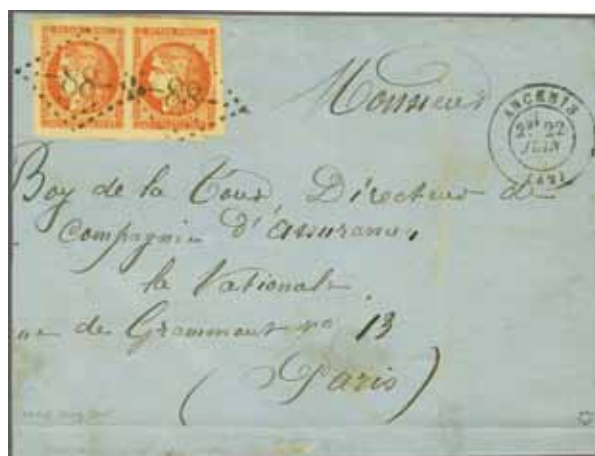 88 88
Monsieur
ANCENIS
2E 22
JUIN
1871
Boy de la Tour, Directeur de
Compagnie d'assurances
la Nationale
ue de Grammont no 13
(Paris)